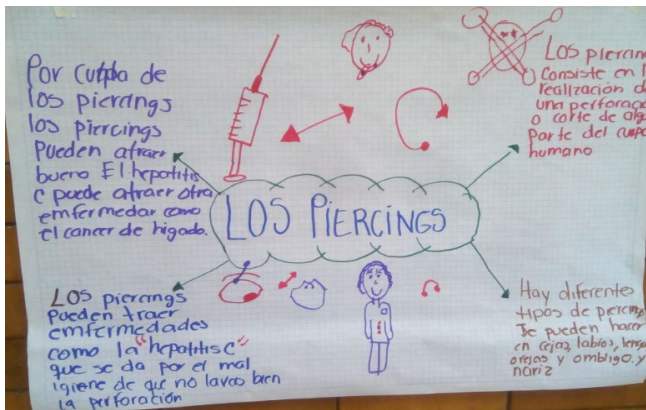 Por culpa de
los piercings
los piercings
Pueden atraer
bueno El hepatitis
C puede atraer otra
emfermedar como
el cancer de higado.
LOS piercing
Consiste en l
realización d
una perforac
o corte de alg
parte del cuerpo
humano
LOS PIERCINGS
LOS piercings
pueden traer
emfermedades
como la "hepatitis c"
que se da por el mal
igiene de que no lavas bien
la perforación
Hay diferente
tipos de
Se pueden hacer
en cejas, labios, leng
orejas y ombligo. y
nariz